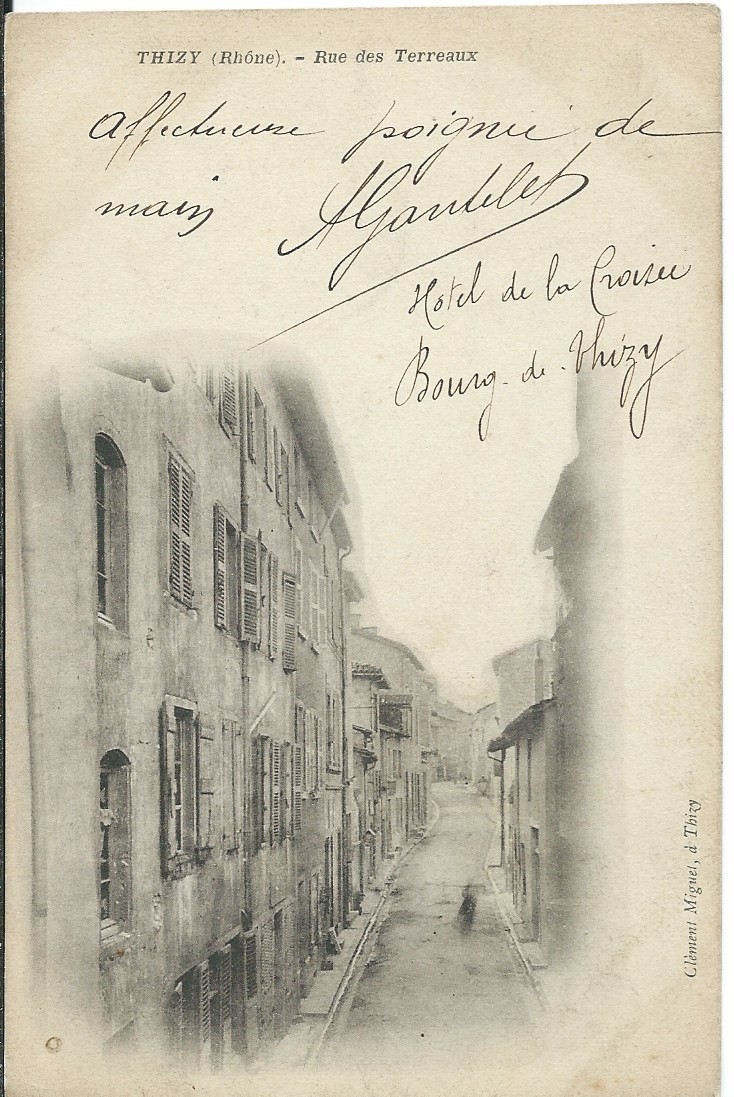 THIZY (Rhône). - Rue des Terreaux
Affectueuse poignée de
main AGantelet
Hôtel de la Croisée
Bourg-de-Thizy
Clément Miguet, à Thizy